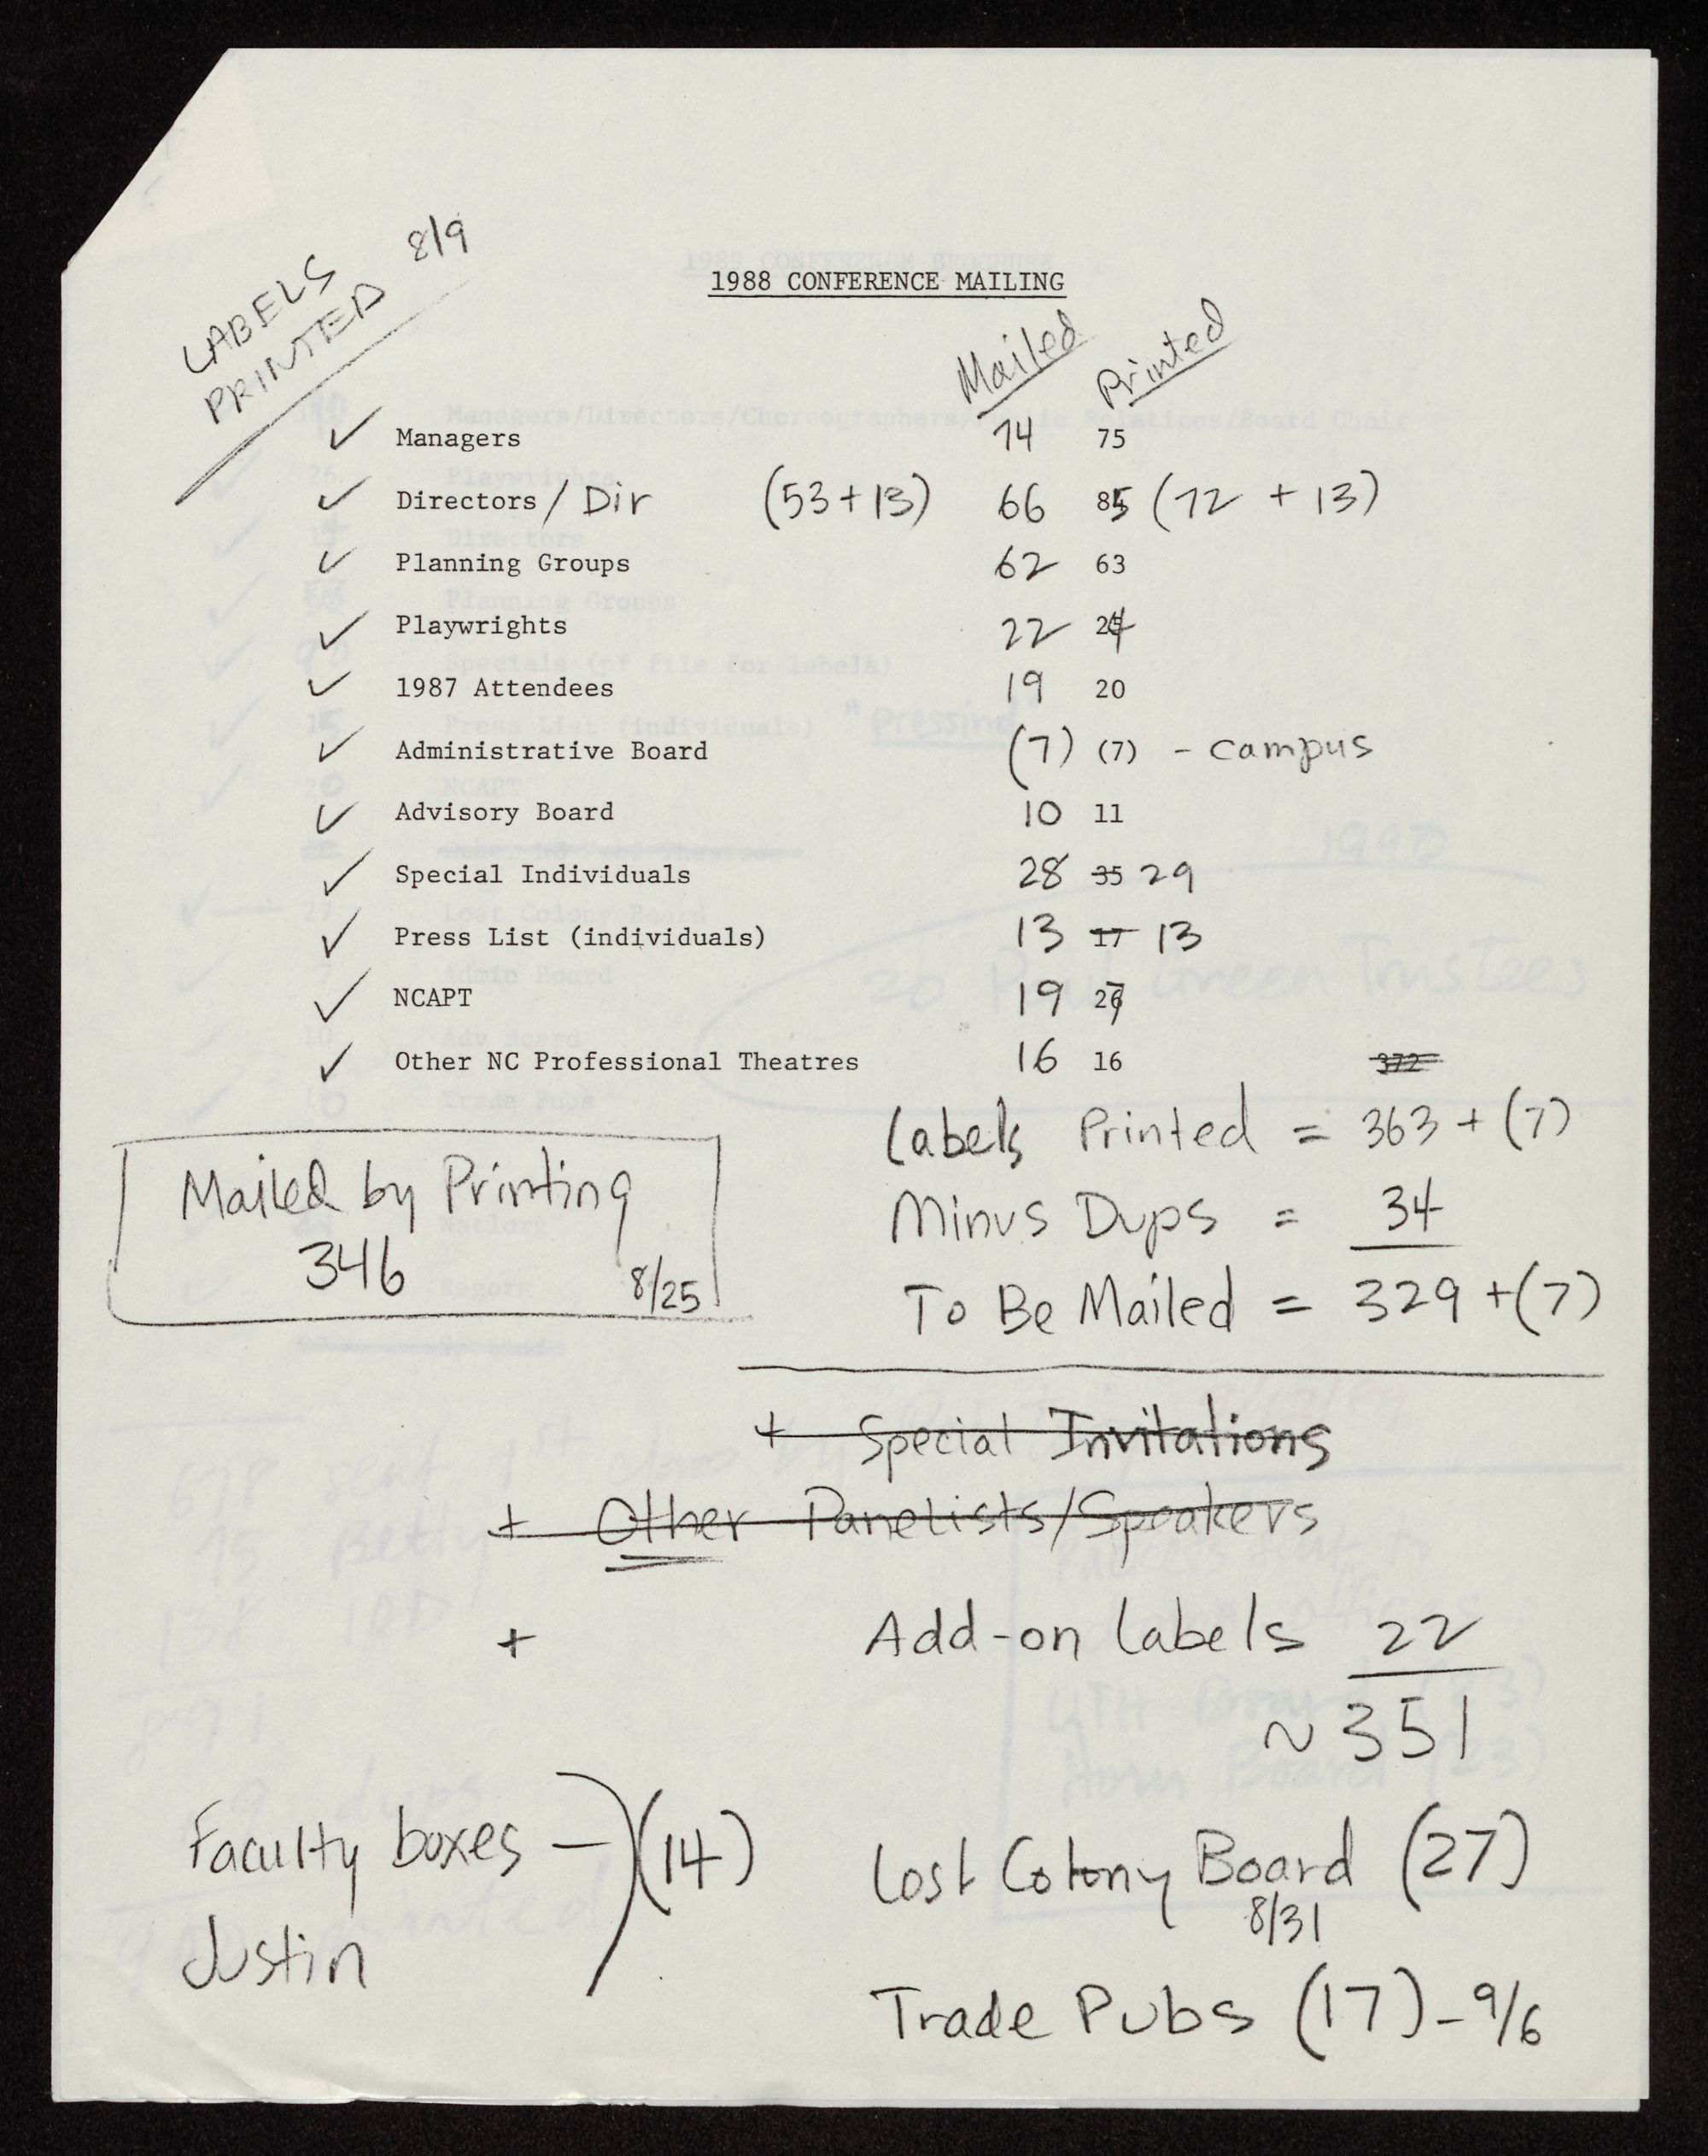 LABELS
PRINTED 8/9
1988 CONFERENCE MAILING
Mailed Printed
✓ Managers 74 75
✓ Directors / Dir (53+13) 66 85 (72 + 13)
✓ Planning Groups 62 63
✓ Playwrights 22 24
✓ 1987 Attendees 19 20
✓ Administrative Board (7) (7) - campus
✓ Advisory Board 10 11
✓ Special Individuals 28 35 29
✓ Press List (individuals) 13 17 13
✓ NCAPT 19 27
✓ Other NC Professional Theatres 16 16
372
Labels Printed = 363 + (7)
Minus Dups = 34
To Be Mailed = 329 + (7)
Mailed by Printing
346 8/25
+ Special Invitations
+ Other Panelists/Speakers
+ Add-on labels 22
~ 351
Faculty boxes — (14)
Justin
Lost Colony Board (27)
8/31
Trade Pubs (17) - 9/6